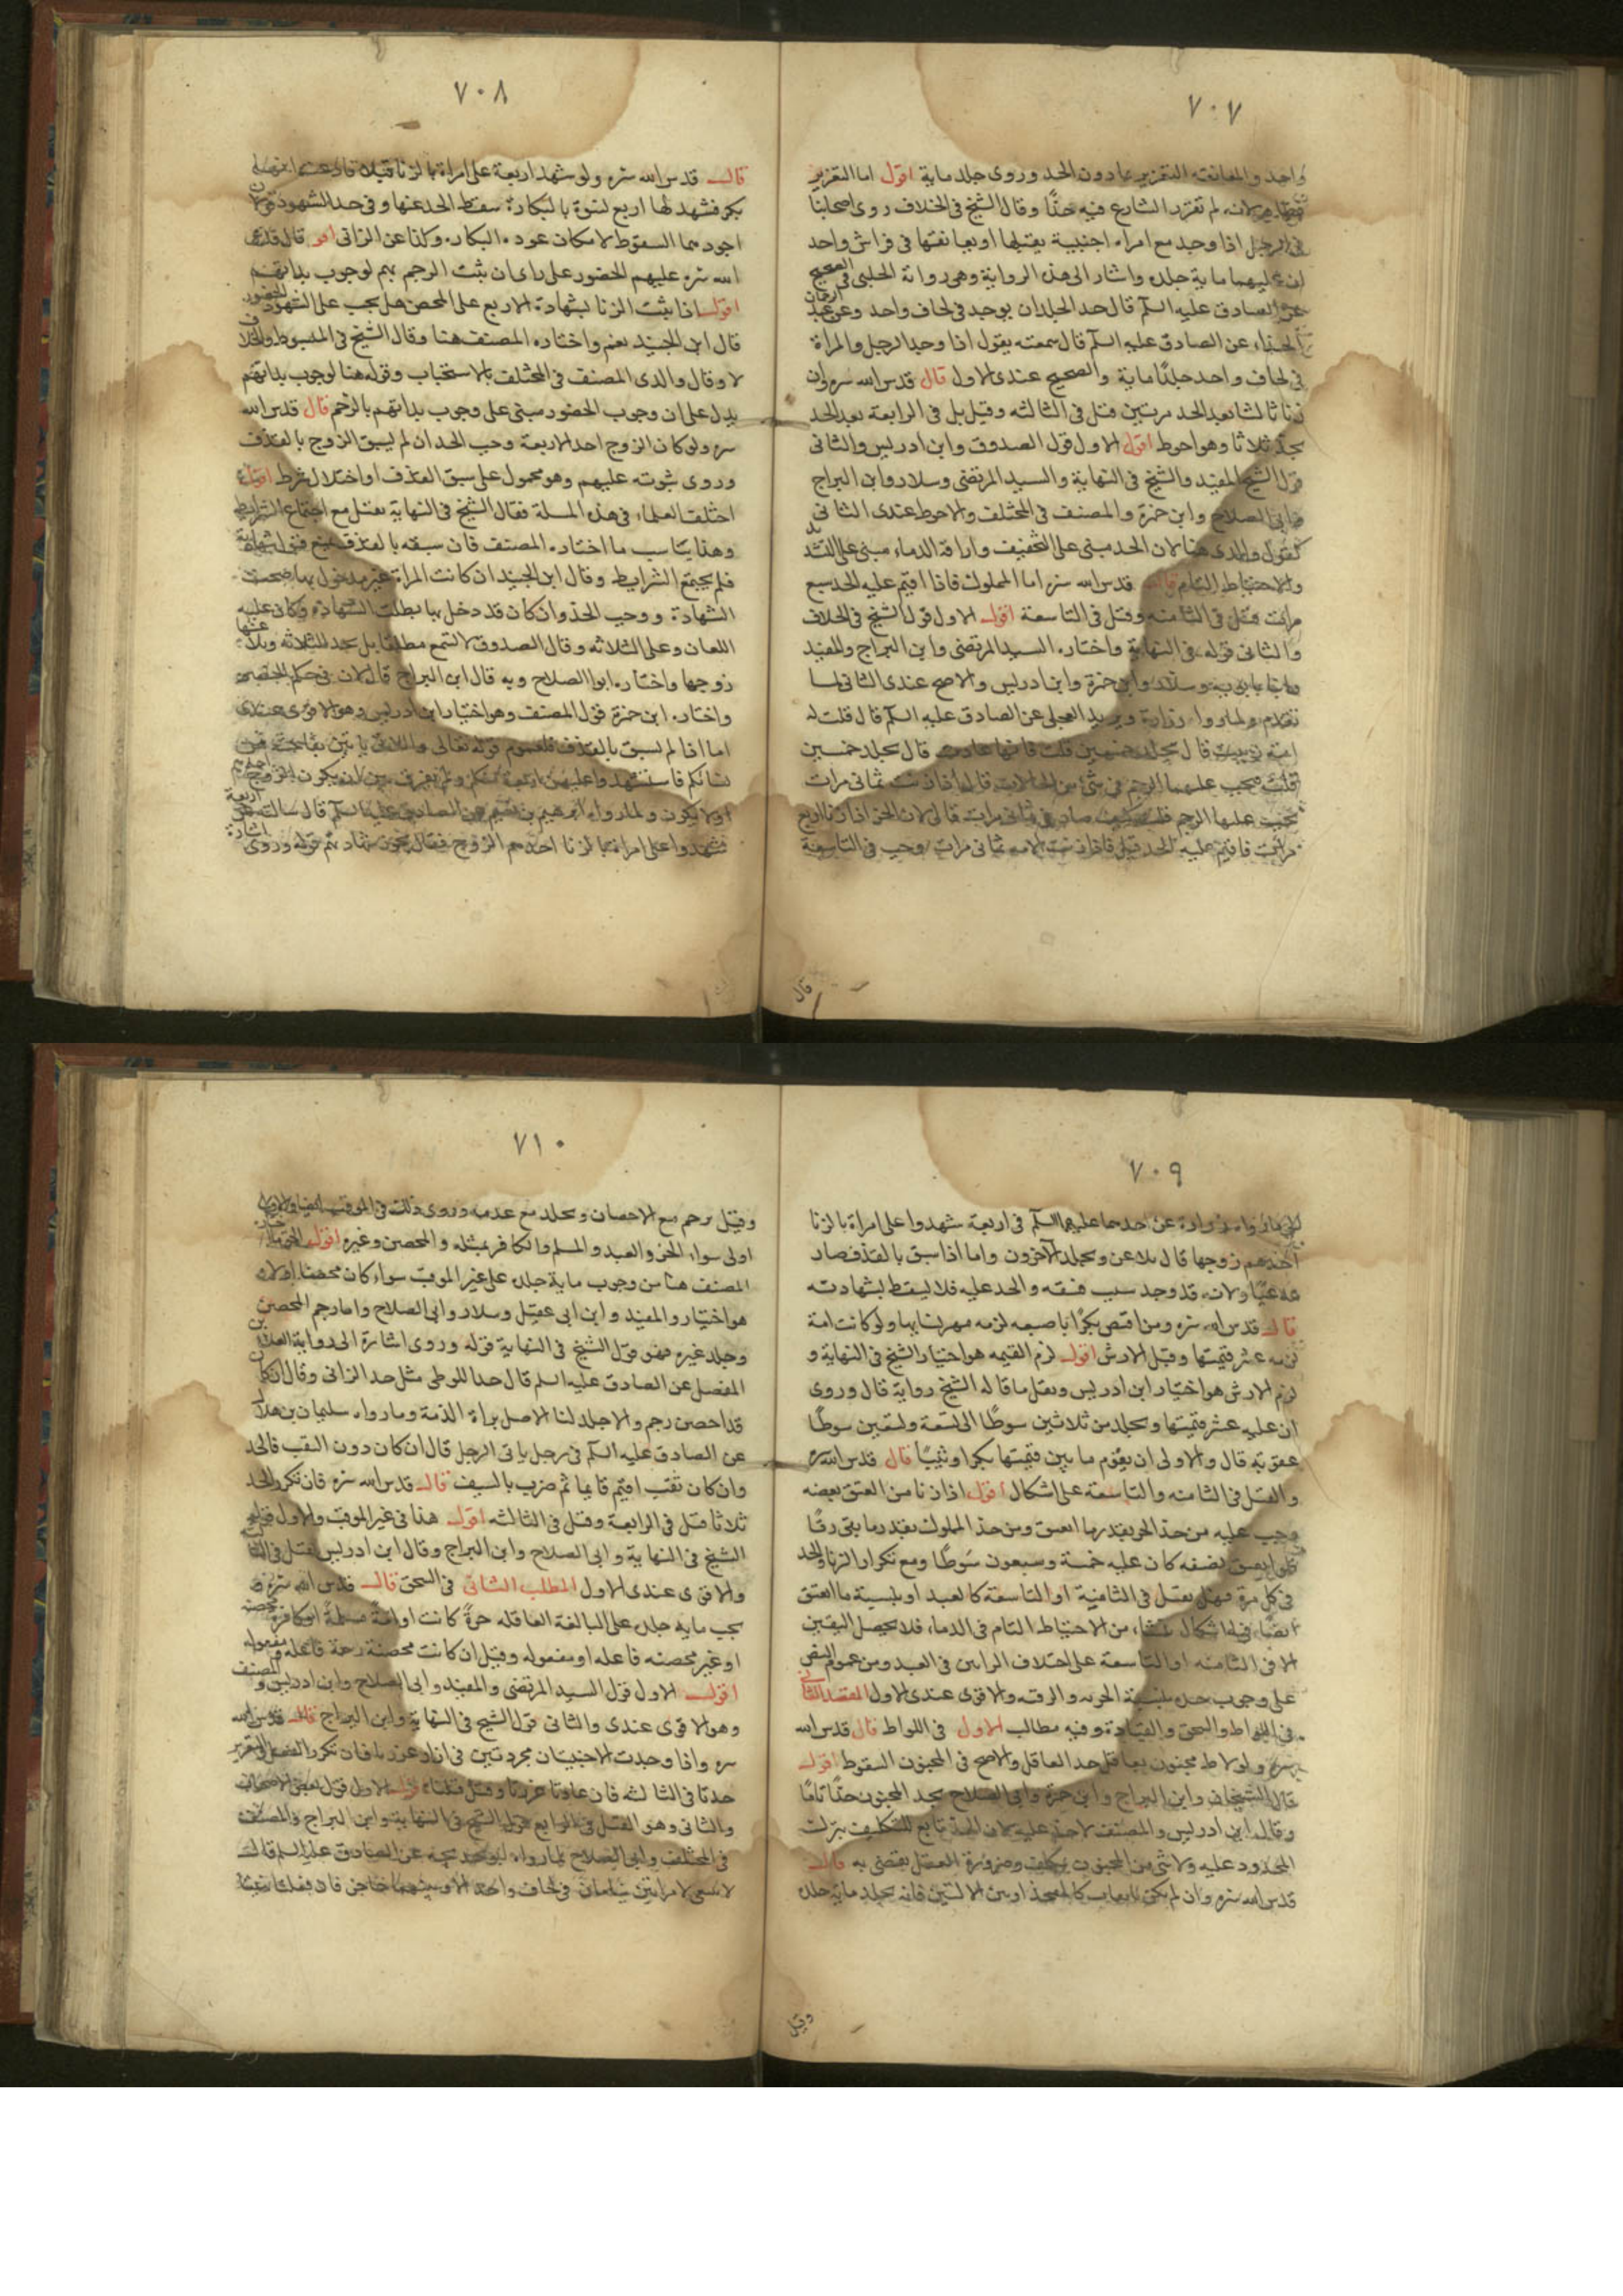 ٧٠٧
واحد والمعانقة التعزير بما دون الحد وروى جلد ماية اقول اما التعزير
لانه لم يقرر الشارع فيه حدًا وقال الشيخ فى الخلاف روى اصحابنا
فى الرجل اذا وجد مع امراه اجنبية يقبلها او يعانقها فى فراش واحد
ان عليهما ماية جلده واشار الى هذه الرواية وهى رواية الحلبى فى الصحيح
عن الصادق عليه السلم قال حد الجلد ان يوجد فى لحاف واحد وعن عبد الرحمان
الحذاء عن الصادق عليه السلم قال سمعته يقول اذا وجد الرجل والمراة
فى لحاف واحد جلدًا ماية والصحيح عندى الاول قال قدس الله سره ولو
زنا ثالثا بعد الحد مرتين قتل فى الثالثه وقيل بل فى الرابعة بعد الحد
ثلاثا وهو احوط اقول الاول قول الصدوق وابن ادريس والثانى
قول الشيخ المفيد والشيخ فى النهاية والسيد المرتضى وسلار وابن البراج
وابى الصلاح وابن حمزة والمصنف فى المختلف والاحوط عندى الثانى
كقول والدى هنا لان الحد مبنى على التخفيف واراقة الدماء مبنى على التشديد
والاحتياط التام قال قدس الله سره اما المملوك فاذا اقيم عليه الحد سبع
مرات قتل فى الثامنه وقتل فى التاسعة اقول الاول قول الشيخ فى الخلاف
والثانى قوله فى النهاية واختاره السيد المرتضى وابن البراج والمفيد
وابنا بابويه وسلار وابن حمزة وابن ادريس والاصح عندى الثانى لما
تقدم ولما رواه زرارة وبريد العجلى عن الصادق عليه السلم قال قلت له
امة زنيت قال يجلد خمسين قلت فانها عادت قال يجلد خمسين
قلت فيجب عليها الرجم فى شئ من الحالات قال اذا زنت ثمانى مرات
يجب عليها الرجم قلت كيف صار فى ثمانى مرات قال لان الحر اذا زنا اربع
مرات فاقيم عليه الحد قتل فاذا زنت الامه ثمانى مرات وجب فى التاسعة
قال
٧٠٨
قال قدس الله سره ولو شهد اربعة على امراة بالزنا قبلا فادعت انها
بكر فشهد لها اربع نسوة بالبكارة سقط الحد عنها وفى حد الشهود قولان
اجودهما السقوط لامكان عود البكاره وكذا عن الزانى قال قدس
الله سره عليهم الحضور على راى ان ثبت الرجم بهم لوجوب بداتهم
اقول اذا ثبت الزنا بشهادة الاربع على المحصن هل يجب على الشهود الحضور
قال ابن الجنيد نعم واختاره المصنف هنا وقال الشيخ فى المبسوط والخلاف
لا وقال والدى المصنف فى المختلف بالاستحباب وقوله هنا لوجوب بداتهم
يدل على ان وجوب الحضور مبنى على وجوب بداتهم بالرجم قال قدس الله
سره ولو كان الزوج احد الاربعة وجب الحد ان لم يسبق الزوج بالقذف
وروى ثبوته عليهم وهو محمول على سبق القذف او اختلال شرط اقول
اختلف العلماء فى هذه المسلة فقال الشيخ فى النهاية يقبل مع اجتماع الشرايط
وهذا يناسب ما اختاره المصنف فان سبقه بالقذف يمنع قبول شهادته
فلم يجتمع الشرايط وقال ابن الجنيد ان كانت المراة غير مدخول بها صحت
الشهادة ووجب الحد وان كان قد دخل بها بطلت الشهادة وكان عليه
اللعان وعلى الثلاثه وقال الصدوق لا تسمع مطلقا بل يحد الثلاثه ويلاعنها
زوجها واختاره ابوا الصلاح وبه قال ابن البراج قال لانه فى حكم الخصم
واختاره ابن حمزة قول المصنف وهو اختيار ابن ادريس وهو الاقوى عندى
اما اذا لم يسبق بالقذف فلعموم قوله تعالى واللاتى ياتين بفاحشة من
نسائكم فاستشهدوا عليهن اربعة منكم ولم يفرق بين ان يكون الزوج احدهم
او لا يكون ولما رواه ابرهيم بن نعيم عن الصادق عليه السلم قال سالته عن اربعة
شهدوا على امراة بالزنا احدهم الزوج فقال يجوز شهادتهم قوله وروى اشارة
٧٠٩
الى ما رواه زرارة عن احدهما عليهما السلم فى اربعة شهدوا على امراة بالزنا
احدهم زوجها قال يلاعن ويجلد الآخرون واما اذا سبق بالقذف صار
مدعيًا ولانه قد وجد سبب فسقه والحد عليه فلا يسقط بشهادته
قال قدس الله سره ومن اقتض بكرًا باصبعه لزمه مهر نسايها ولو كانت امة
لزمه عشر قيمتها وقيل الارش اقول لزم القيمه هو اختيار الشيخ فى النهاية و
لزم الارش هو اختيار ابن ادريس ونقل ما قاله الشيخ رواية قال وروى
ان عليه عشر قيمتها ويجلد من ثلاثين سوطًا الى تسعة وتسعين سوطًا
عقوبة قال والاولى ان يقوم ما بين قيمتها بكرا وثيبًا قال قدس الله سره
والقتل فى الثامنه والتاسعة على اشكال اقول اذا زنا من اعتق بعضه
وجب عليه من حد الحر بقدر ما اعتق ومن حد المملوك بقدر ما بقى رقًا
فلو اعتق نصفه كان عليه خمسة وسبعون سوطًا ومع تكرار الزنا والحد
فى كل مرة فهل يقتل فى الثامنة او التاسعة كالعبد او بنسبة ما اعتق
ايضًا فيه اشكال ينشاء من الاحتياط التام فى الدماء فلا يحصل اليقين
الا فى الثامنه او التاسعة على اختلاف الرايين فى العبد ومن عموم النص
على وجوب حده بنسبة الحريه والرقيه والاقوى عندى الاول المقصد الثانى
فى اللواط والسحق والقيادة وفيه مطالب الاول فى اللواط قال قدس الله
سره ولو لاط مجنون بعاقل حد العاقل والاصح فى المجنون السقوط اقول
قال الشيخان وابن البراج وابن حمزة وابى الصلاح يحد المجنون حدًا تامًا
وقال ابن ادريس والمصنف لا حد عليه لان الحد تابع للتكليف بترك
المحدود عليه ولا شئ من المجنون بمكلف وضرورة العقل يقضى به قال
قدس الله سره وان لم يكن بايعاب كالفخذ او بين الاليتين فانه يجلد ماية جلده
وقيل
٧١٠
وقيل يرجم مع الاحصان ويجلد مع عدمه وروى ذلك فى الموقب ايضا والاول
اولى سواء الحر والعبد والمسلم والكافر بمثله والمحصن وغيره اقول اختيار
المصنف هنا من وجوب ماية جلده على غير الموقب سواء كان محصنا او لا
هو اختيار والمفيد وابن ابى عقيل وسلار وابى الصلاح واما رجم المحصن
وجلد غيره فهو قول الشيخ فى النهاية قوله وروى اشارة الى رواية العلا بن
المفضل عن الصادق عليه السلم قال حد اللوطى مثل حد الزانى وقال ان كان
قد احصن رجم والا جلد لنا الاصل براة الذمة وما رواه سليمان بن هلال
عن الصادق عليه السلم فى رجل ياتى الرجل قال ان كان دون الثقب فالحد
وان كان ثقب اقيم قايما ثم ضرب بالسيف قال قدس الله سره فان تكرر الحد
ثلاثا قتل فى الرابعة وقتل فى الثالثه اقول هذا فى غير الموقب والاول قول
الشيخ فى النهاية وابى الصلاح وابن البراج وقال ابن ادريس يقتل فى الثالثه
والاقوى عندى الاول المطلب الثانى فى السحق قال قدس الله سره
يجب ماية جلده على البالغة العاقله حرةً كانت او امةً مسلمةً او كافرة محصنه
او غير محصنه فاعله او مفعوله وقيل ان كانت محصنة رجمة فاعله ومفعوله
اقول الاول قول السيد المرتضى والمفيد وابى الصلاح وابن ادريس والمصنف
وهو الاقوى عندى والثانى قول الشيخ فى النهاية وابن البراج قال قدس الله
سره واذا وجدت الاجنبيتان مجردتين فى ازار عزرتا فان تكرر الفعل والتعزير
حدتا فى الثالثه فان عادتا عزرتا وقيل قتلتا اقول الاول قول بعض الاصحاب
والثانى وهو القتل فى الرابع قول الشيخ فى النهاية وابن البراج والمصنف
فى المختلف وابى الصلاح لما رواه ابو خديجة عن الصادق عليه السلم قال
لا ينبغى لامراتين ينامان فى لحاف واحد الا وبينهما حاجز فان فعلتا نهيتا